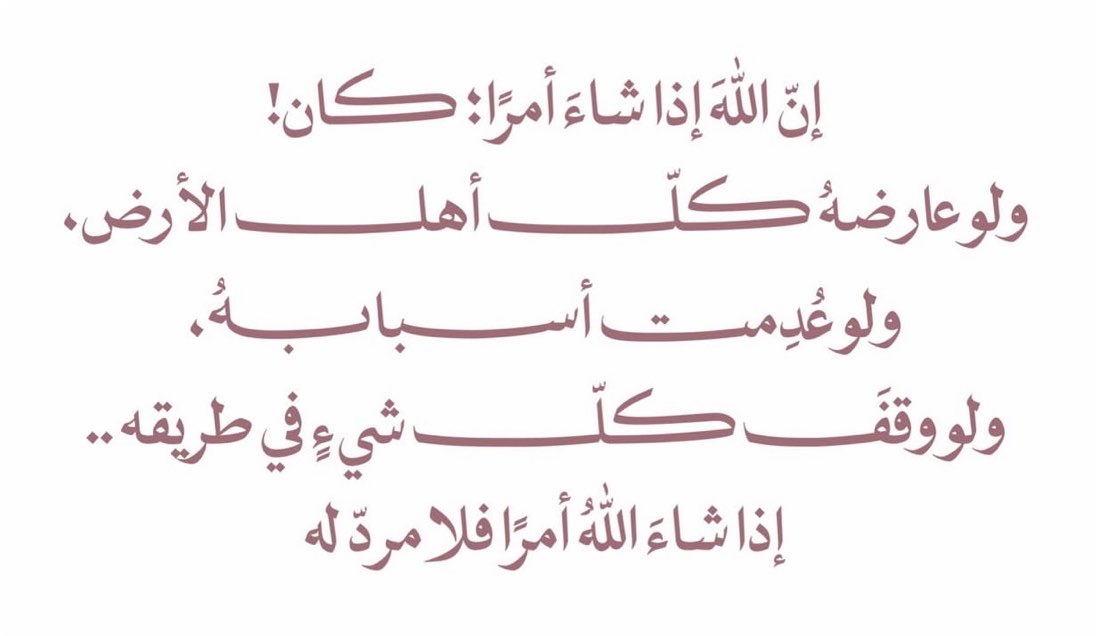 إنّ اللهَ إذا شاءَ أمرًا؛ كان!
ولو عارضهُ كلّ أهل الأرض.
ولو عُدِمت أسبابهُ.
ولو وقفَ كلّ شيءٍ في طريقه ..
إذا شاءَ اللهُ أمرًا فلا مردّ له